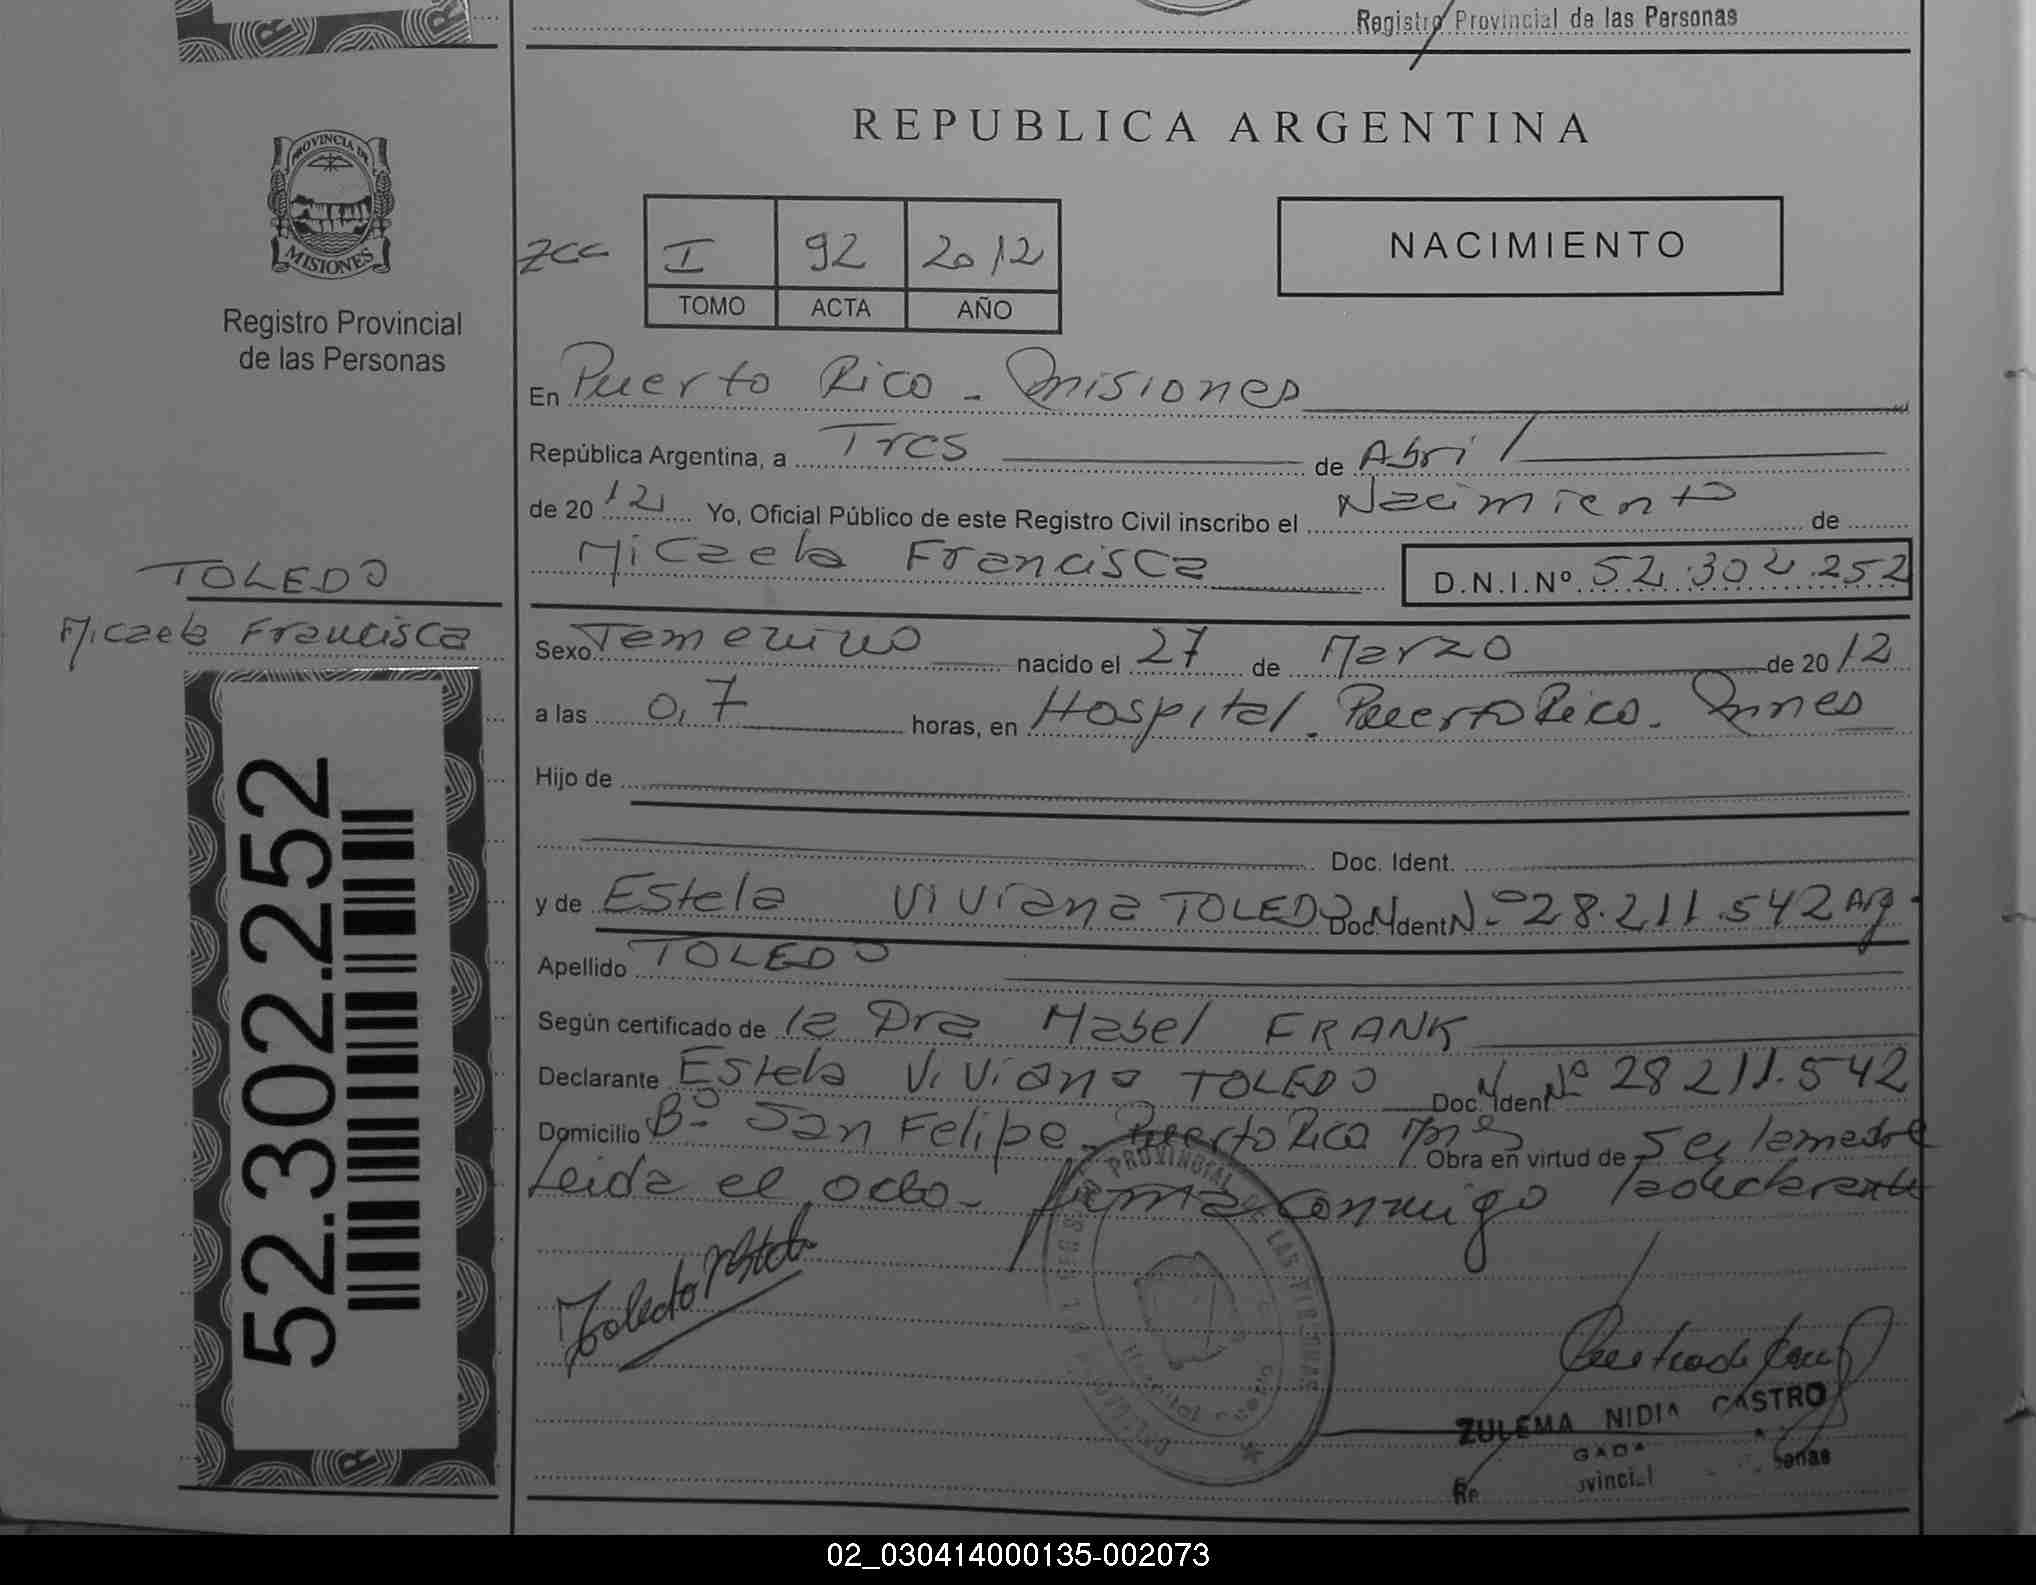 Registro Provincial de las Personas
PROVINCIA DE
MISIONES
Registro Provincial
de las Personas
REPUBLICA ARGENTINA
I 92 2012
TOMO ACTA AÑO
NACIMIENTO
En Puerto Rico - Misiones
República Argentina, a Tres de Abril
de 2012 Yo, Oficial Público de este Registro Civil inscribo el Nacimiento de
Micaela Francisca D.N.I.Nº 52.302.252
TOLEDO
Micaela Francisca
52.302.252
Sexo Femenino nacido el 27 de Marzo de 2012
a las 0,7 horas, en Hospital - Puerto Rico - Mnes
Hijo de
Doc. Ident.
y de Estela Viviana TOLEDO Doc. Ident Nº 28.211.542 Arg.
Apellido TOLEDO
Según certificado de la Dra Mabel FRANK
Declarante Estela Viviana TOLEDO Doc. Ident Nº 28 211.542
Domicilio Bº San Felipe - Puerto Rico Mnes Obra en virtud de ser la madre
Leida el acta - firma conmigo la declarante
Toledo
PROVINCIAL DE LAS PERSONAS
ZULEMA NIDIA CASTRO
02_030414000135-002073